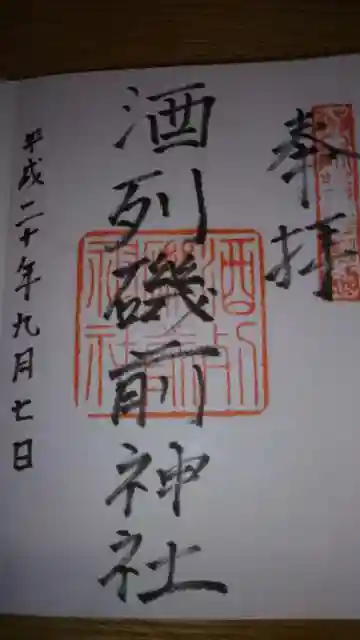 奉拝
酒列磯前神社
平成二十年九月七日